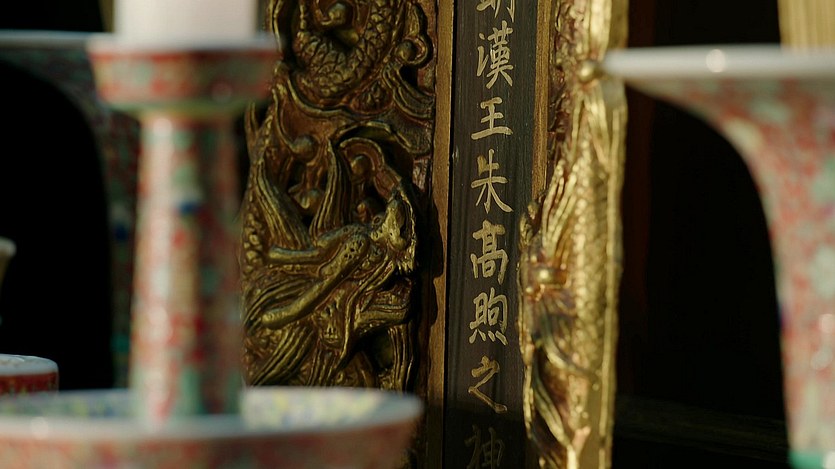 明漢王朱高煦之神